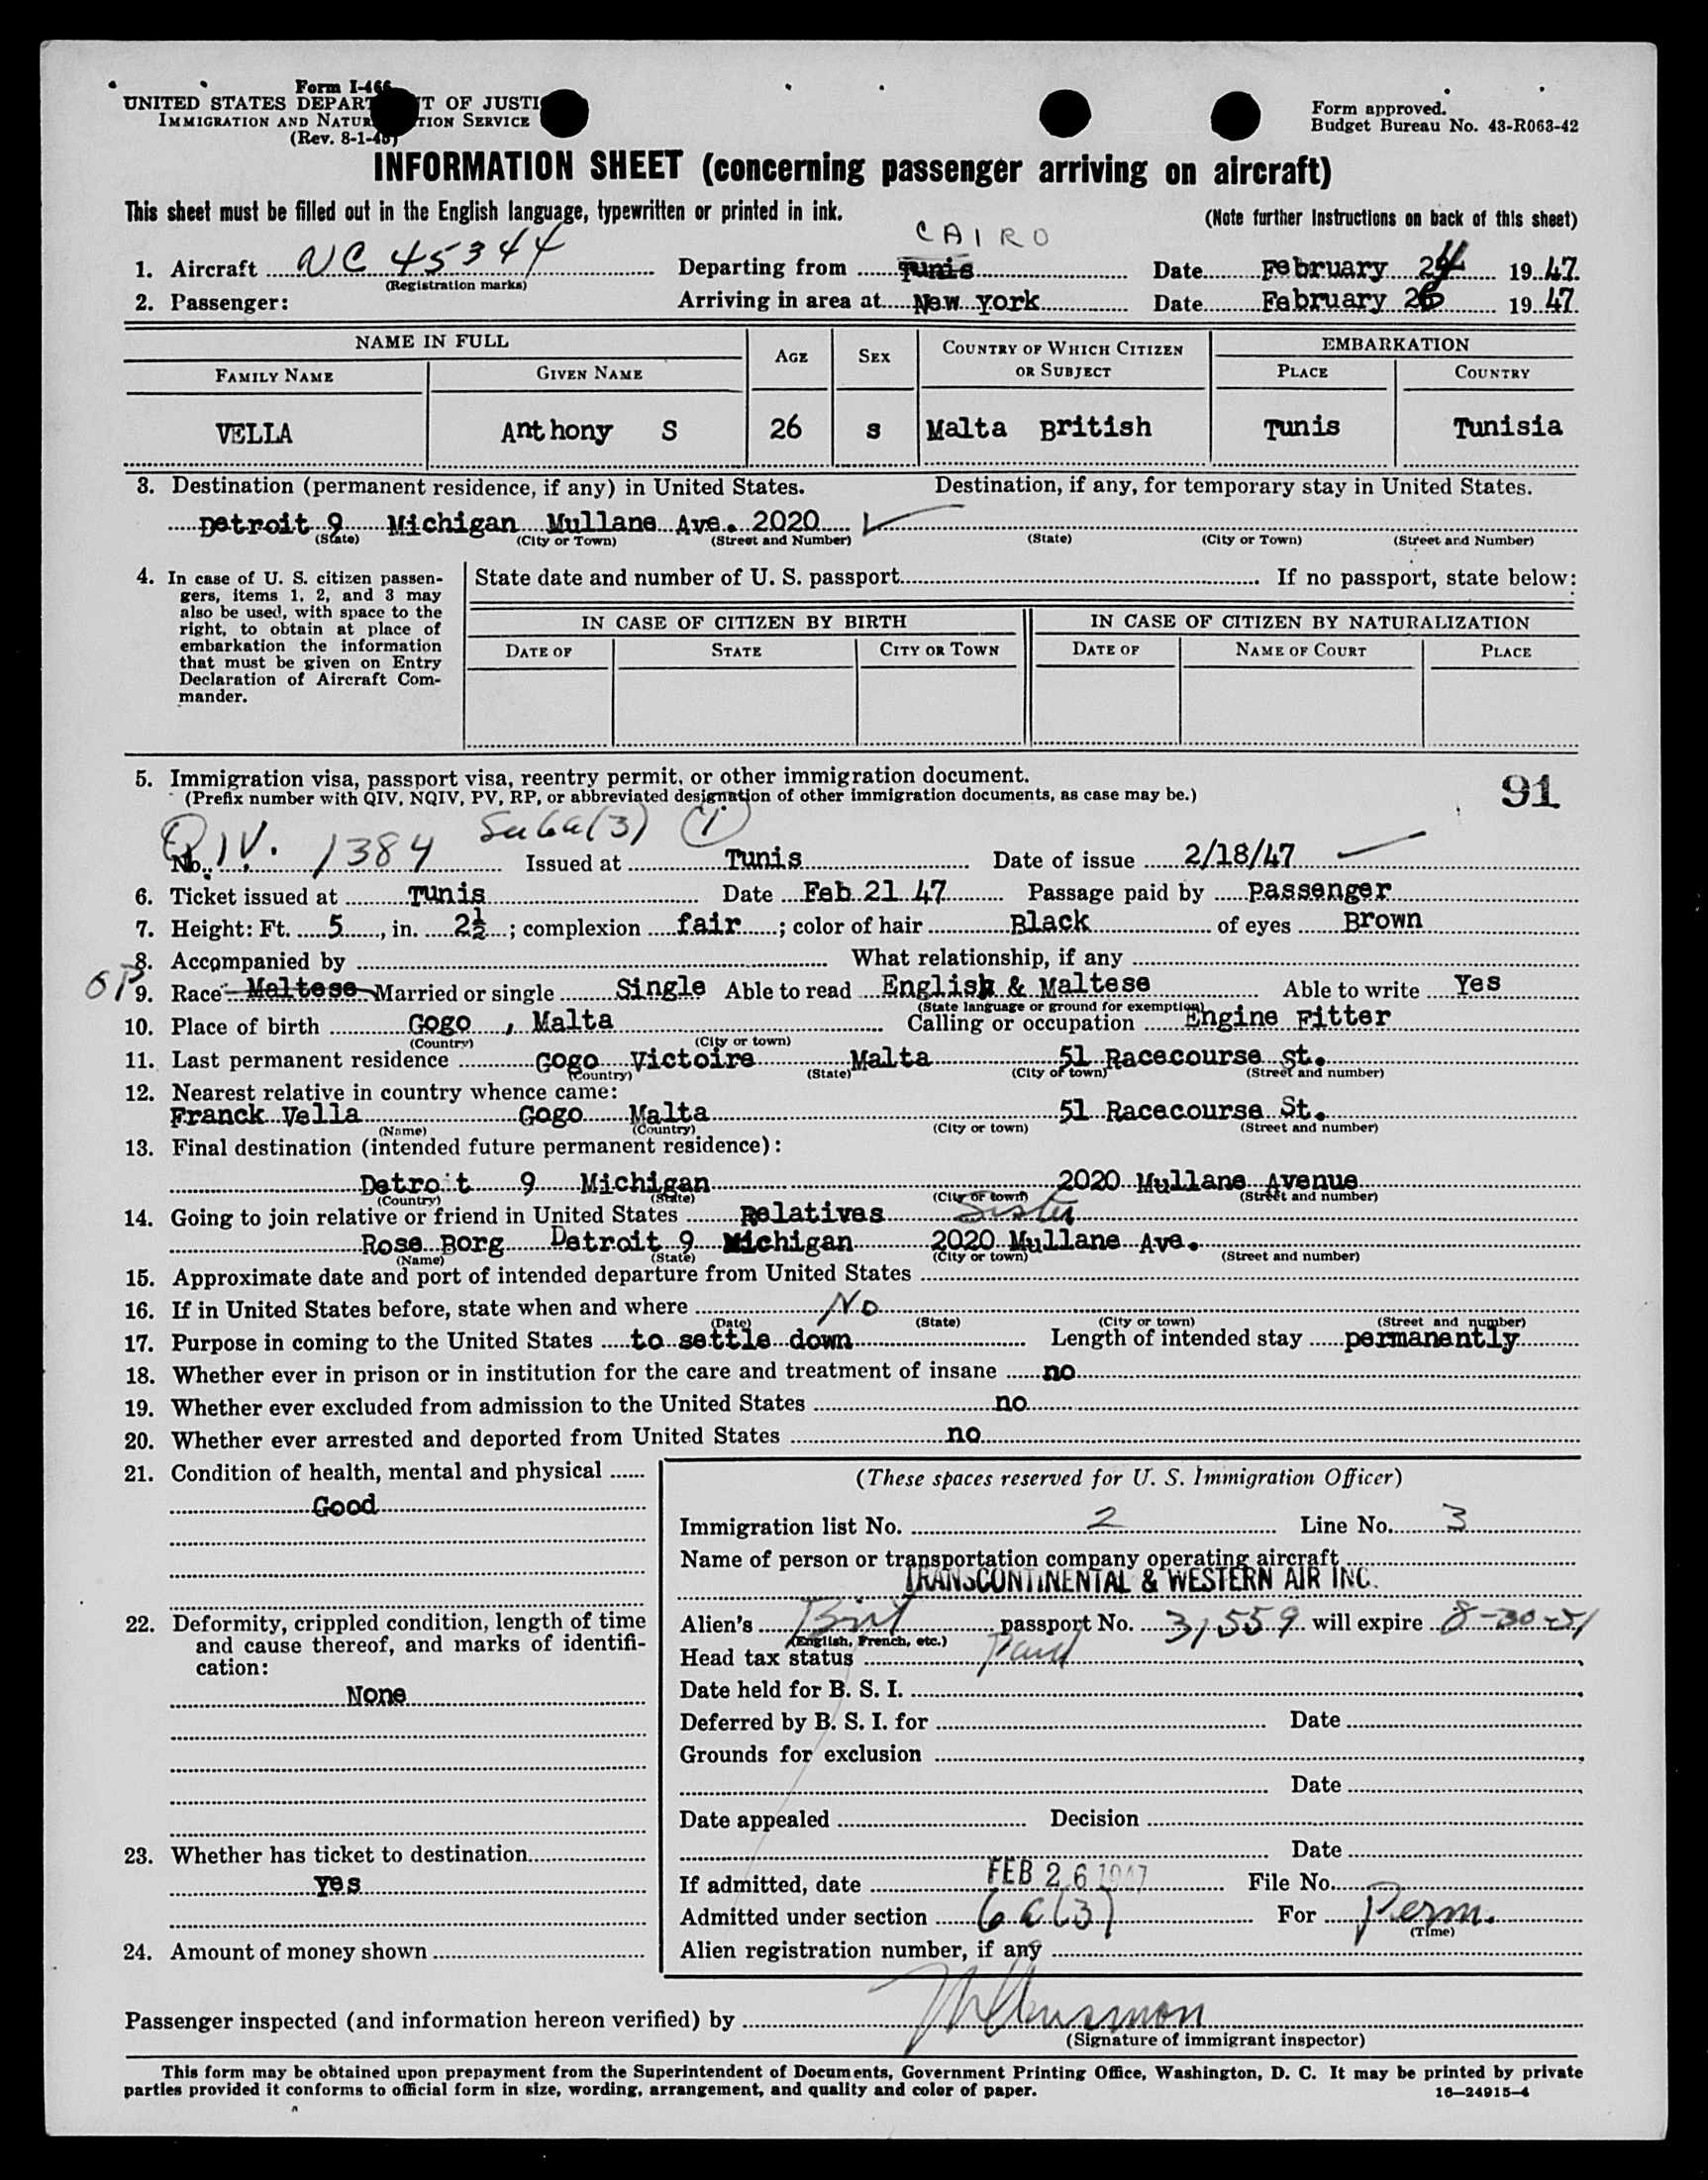 Form I-466
UNITED STATES DEPARTMENT OF JUSTICE
IMMIGRATION AND NATURALIZATION SERVICE
(Rev. 8-1-45)
Form approved.
Budget Bureau No. 43-R063-42
INFORMATION SHEET (concerning passenger arriving on aircraft)
This sheet must be filled out in the English language, typewritten or printed in ink.
(Note further instructions on back of this sheet)
CAIRO
1. Aircraft NC 45344 Departing from Tunis Date February 24 1947
(Registration marks)
2. Passenger: Arriving in area at New York Date February 26 1947
NAME IN FULL AGE SEX COUNTRY OF WHICH CITIZEN OR SUBJECT EMBARKATION
FAMILY NAME GIVEN NAME PLACE COUNTRY
VELLA Anthony S 26 s Malta British Tunis Tunisia
3. Destination (permanent residence, if any) in United States. Destination, if any, for temporary stay in United States.
Detroit 9 Michigan Mullane Ave. 2020
(State) (City or Town) (Street and Number) (State) (City or Town) (Street and Number)
4. In case of U. S. citizen passen-
gers, items 1, 2, and 3 may
also be used, with space to the
right, to obtain at place of
embarkation the information
that must be given on Entry
Declaration of Aircraft Com-
mander.
State date and number of U. S. passport If no passport, state below:
IN CASE OF CITIZEN BY BIRTH IN CASE OF CITIZEN BY NATURALIZATION
DATE OF STATE CITY OR TOWN DATE OF NAME OF COURT PLACE
5. Immigration visa, passport visa, reentry permit, or other immigration document.
(Prefix number with QIV, NQIV, PV, RP, or abbreviated designation of other immigration documents, as case may be.)
91
(3) (1)
No. QIV. 1384 Issued at Tunis Date of issue 2/18/47
6. Ticket issued at Tunis Date Feb 21 47 Passage paid by passenger
7. Height: Ft. 5, in. 2½; complexion fair; color of hair Black of eyes Brown
8. Accompanied by What relationship, if any
9. Race Maltese Married or single Single Able to read English & Maltese Able to write Yes
(State language or ground for exemption)
10. Place of birth Gogo, Malta Calling or occupation Engine Fitter
(Country) (City or town)
11. Last permanent residence Gogo Victoire Malta 51 Racecourse St.
(Country) (State) (City or town) (Street and number)
12. Nearest relative in country whence came:
Franck Vella Gogo Malta 51 Racecourse St.
(Name) (Country) (City or town) (Street and number)
13. Final destination (intended future permanent residence):
Detroit 9 Michigan 2020 Mullane Avenue
(Country) (State) (City or town) (Street and number)
14. Going to join relative or friend in United States Relatives Sister
Rose Borg Detroit 9 Michigan 2020 Mullane Ave.
(Name) (State) (City or town) (Street and number)
15. Approximate date and port of intended departure from United States
16. If in United States before, state when and where No
(Date) (State) (City or town) (Street and number)
17. Purpose in coming to the United States to settle down Length of intended stay permanently
18. Whether ever in prison or in institution for the care and treatment of insane no
19. Whether ever excluded from admission to the United States no
20. Whether ever arrested and deported from United States no
21. Condition of health, mental and physical
Good
22. Deformity, crippled condition, length of time
and cause thereof, and marks of identifi-
cation:
None
23. Whether has ticket to destination
yes
24. Amount of money shown
(These spaces reserved for U. S. Immigration Officer)
Immigration list No. 2 Line No. 3
Name of person or transportation company operating aircraft
TRANSCONTINENTAL & WESTERN AIR INC.
Alien's Brit passport No. 31559 will expire 8-30-51
(English, French, etc.)
Head tax status Paid
Date held for B. S. I.
Deferred by B. S. I. for Date
Grounds for exclusion
Date
Date appealed Decision
Date
If admitted, date FEB 26 1947 File No.
Admitted under section 6 a (3) For Perm.
(Time)
Alien registration number, if any
Passenger inspected (and information hereon verified) by
(Signature of immigrant inspector)
This form may be obtained upon prepayment from the Superintendent of Documents, Government Printing Office, Washington, D. C. It may be printed by private
parties provided it conforms to official form in size, wording, arrangement, and quality and color of paper.
16—24915-4